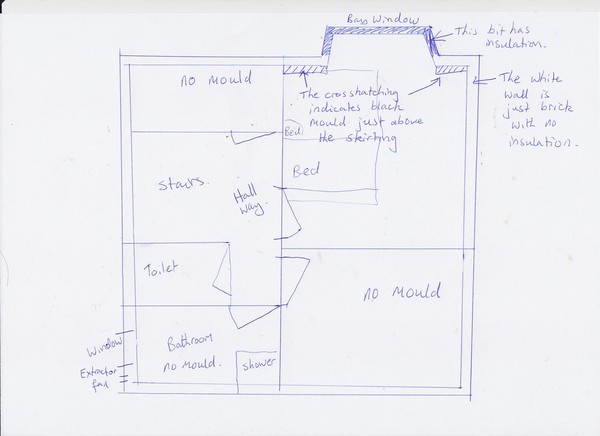 Bass Window
This bit has
insulation.
no mould
The crosshatching
indicates black
mould just above
the skirting
The white
wall is
just brick
with no
insulation.
Bed
Bed
Stairs.
Hall
way.
Toilet
no mould
Window
Bathroom
no mould.
Extractor
fan
shower